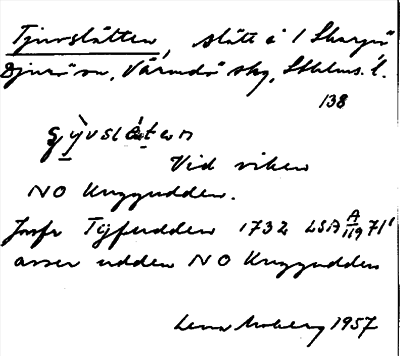 Tjuvslätten, slätt i 1 Skarpö
Djurö sn, Värmdö skg, Sthlms l.
138
Vid viken
NO Kryggudden.
Jmfr Tjyfudden 1732 LSA A 119 71'
avser udden NO Kryggudden
Lena Moberg 1957